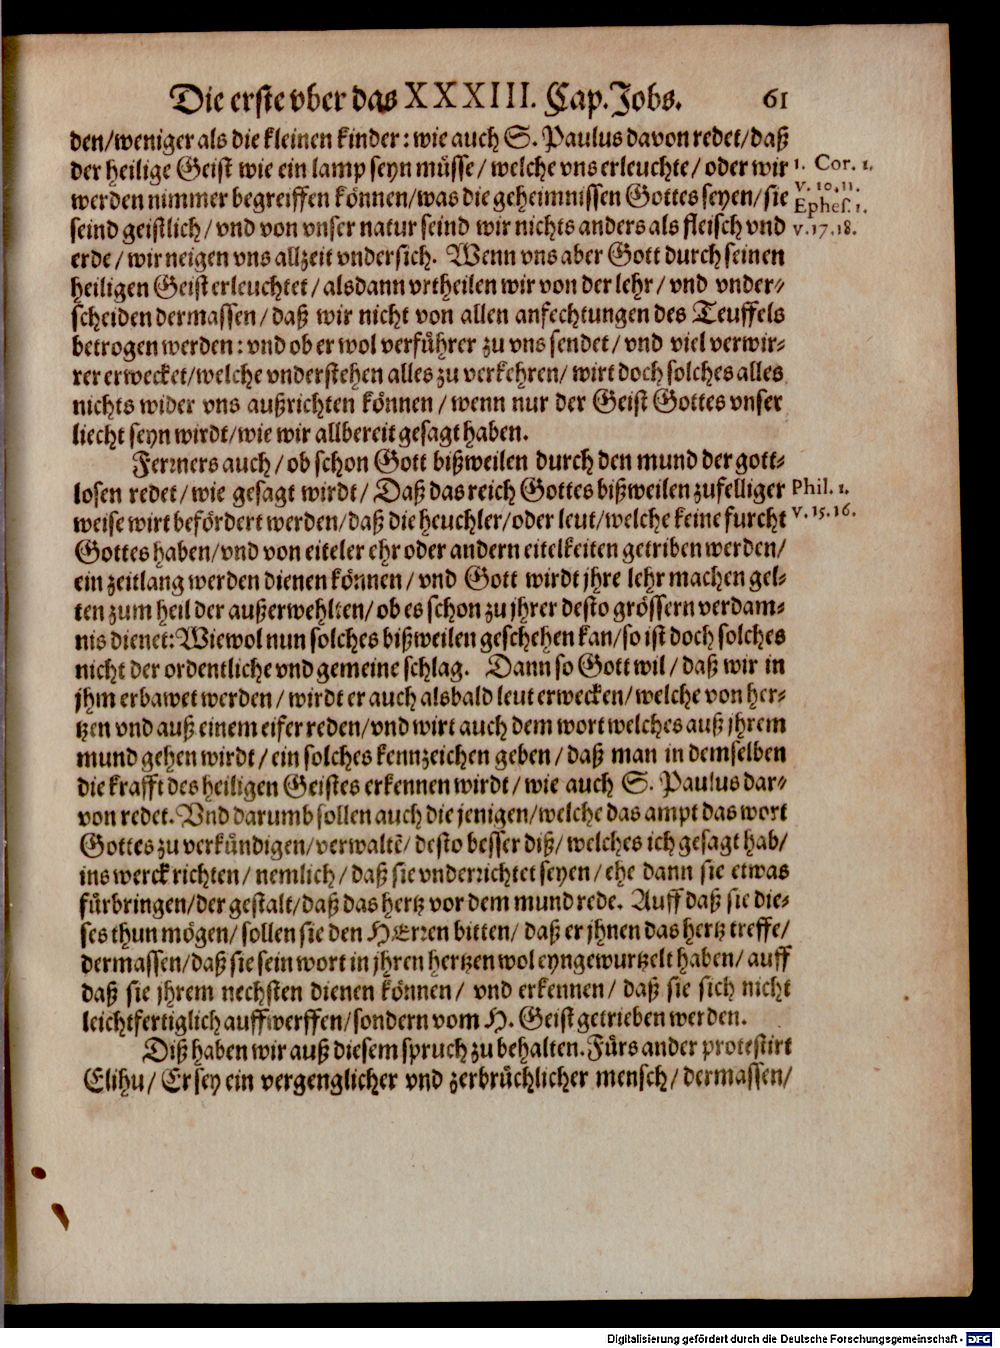 Die erste vber das XXXIII. Cap. Jobs. 61
den/ weniger als die kleinen kinder: wie auch S. Paulus davon redet/ daß
der heilige Geist wie ein lamp seyn müsse/ welche vns erleuchte/ oder wir
1. Cor. 1.
v. 10. 11.
werden nimmer begreiffen können/ was die geheimnissen Gottes seyen/ sie
Ephes. 1.
seind geistlich/ vnd von vnser natur seind wir nichts anders als fleisch vnd
v. 17. 18.
erde/ wir neigen vns allzeit vndersich. Wenn vns aber Gott durch seinen
heiligen Geist erleuchtet/ alsdann vrtheilen wir von der lehr/ vnd vnder-
scheiden dermassen/ daß wir nicht von allen anfechtungen des Teuffels
betrogen werden: vnd ob er wol verführer zu vns sendet/ vnd viel verwir-
rer erwecket/ welche vnderstehen alles zu verkehren/ wirt doch solches alles
nichts wider vns außrichten können/ wenn nur der Geist Gottes vnser
liecht seyn wirdt/ wie wir allbereit gesagt haben.
Ferrners auch/ ob schon Gott bißweilen durch den mund der gott-
losen redet/ wie gesagt wirdt/ Daß das reich Gottes bißweilen zufelliger
Phil. 1.
weise wirt befördert werden/ daß die heuchler/ oder leut/ welche keine furcht
v. 15. 16.
Gottes haben/ vnd von eiteler ehr oder andern eitelkeiten getriben werden/
ein zeitlang werden dienen können/ vnd Gott wirdt jhre lehr machen gel-
ten zum heil der außerwehlten/ ob es schon zu jhrer desto grössern verdam-
nis dienet: Wiewol nun solches bißweilen geschehen kan/ so ist doch solches
nicht der ordentliche vnd gemeine schlag. Dann so Gott wil/ daß wir in
jhm erbawet werden/ wirdt er auch alsbald leut erwecken/ welche von her-
tzen vnd auß einem eifer reden/ vnd wirt auch dem wort welches auß jhrem
mund gehen wirdt/ ein solches kennzeichen geben/ daß man in demselben
die krafft des heiligen Geistes erkennen wirdt/ wie auch S. Paulus dar-
von redet. Vnd darumb sollen auch die jenigen/ welche das ampt das wort
Gottes zu verkündigen/ verwaltẽ/ desto besser diß/ welches ich gesagt hab/
ins werck richten/ nemlich/ daß sie vnderrichtet seyen/ ehe dann sie etwas
fürbringen/ der gestalt/ daß das hertz vor dem mund rede. Auff daß sie die-
ses thun mögen/ sollen sie den HErren bitten/ daß er jhnen das hertz treffe/
dermassen/ daß sie sein wort in jhren hertzen wol eyngewurtzelt haben/ auff
daß sie jhrem nechsten dienen können/ vnd erkennen/ daß sie sich nicht
leichtfertiglich auffwerffen/ sondern vom H. Geist getrieben werden.
Diß haben wir auß diesem spruch zu behalten. Fürs ander protestirt
Elihu/ Er sey ein vergenglicher vnd zerbrüchlicher mensch/ dermassen/
Digitalisierung gefördert durch die Deutsche Forschungsgemeinschaft - DFG